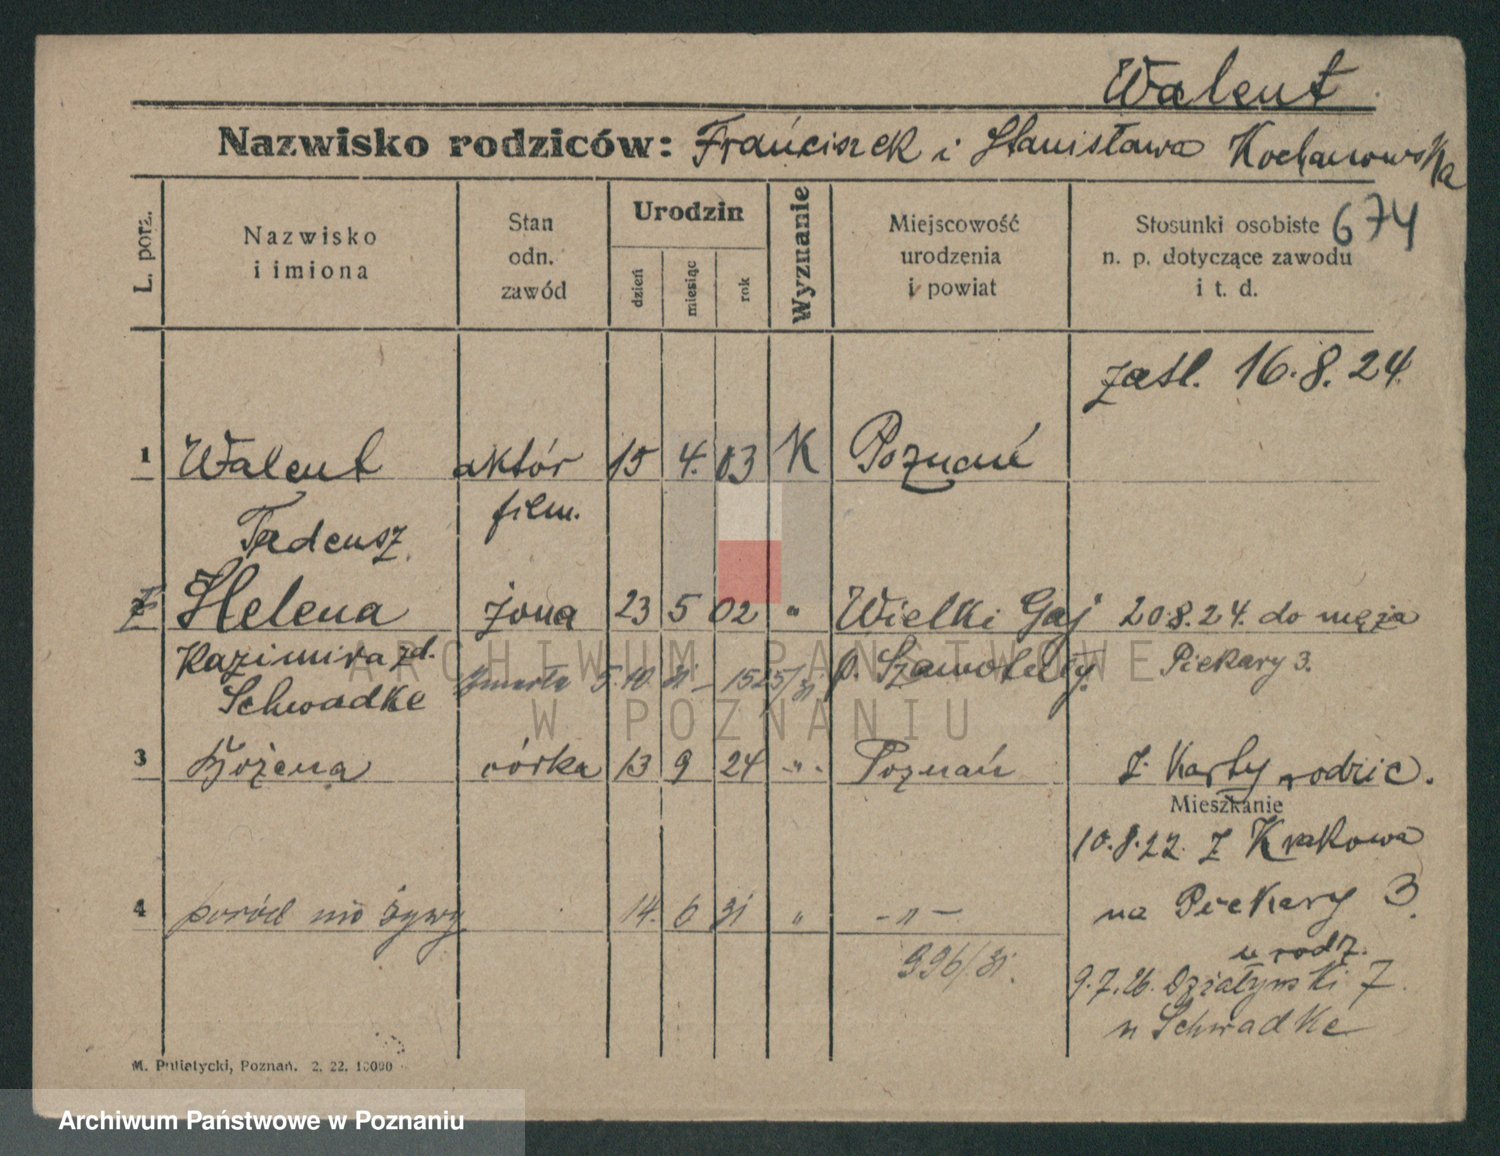 Walent
Nazwisko rodziców: Franciszek i Stanisława Kochanowska
674
L. porz.
Nazwisko
i imiona
Stan
odn.
zawód
Urodzin
dzień
miesiąc
rok
Wyznanie
Miejscowość
urodzenia
i powiat
Stosunki osobiste
n. p. dotyczące zawodu
i t. d.
zaśl. 16.8.24.
1 Walent aktór 15 4. 03 K Poznań
Tadeusz film.
2 Helena żona 23 5 02 " Wielki Gaj 20.8.24. do męża
Kazimira zd. p. Szamotuły Piekary 3.
Schwadke zmarła 5.10.31 – 1525/31
3 Bożena córka 13 9 24 -"- Poznań z Karty rodzic.
Mieszkanie
10.8.22. z Krakowa
4 poród nie żywy 14. 6 31 " -"- na Piekary 3.
u rodz.
996/31. 9.7.26. Działyński 7.
u Schwadke
M. Putiatycki, Poznań. 2. 22. 10000
ARCHIWUM PAŃSTWOWE
W POZNANIU
Archiwum Państwowe w Poznaniu